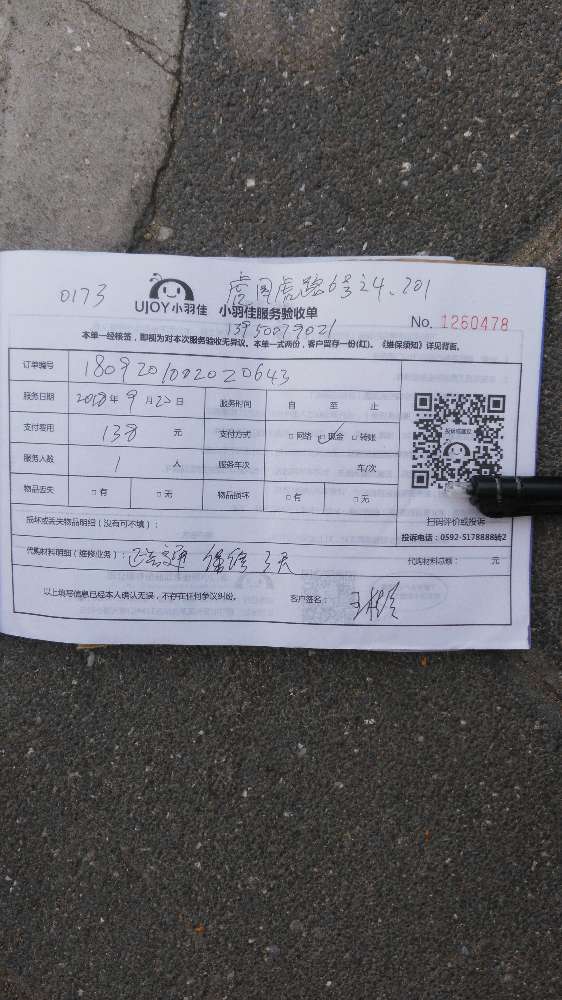 0173
虎园虎路6号之4、201
UJOY小羽佳 小羽佳服务验收单
13950079021
No. 1260478
本单一经核签，即视为对本次服务验收无异议。本单一式两份，客户留存一份(红)。《维保须知》详见背面。
订单编号 180920100202064​3
服务日期 2018年9月20日 服务时间 自 至 止
支付费用 138 元 支付方式 □网络 □现金 □转账
服务人数 1 人 服务车次 车/次
物品丢失 □有 □无 物品损坏 □有 □无
扫码评价或投诉
投诉电话：0592-5178888转2
损坏或丢失物品明细（没有可不填）：
代购材料明细（维修业务）： 已去通 保修3天 代购材料总额： 元
以上填写信息已经本人确认无误，不存在任何争议纠纷。 客户签名：